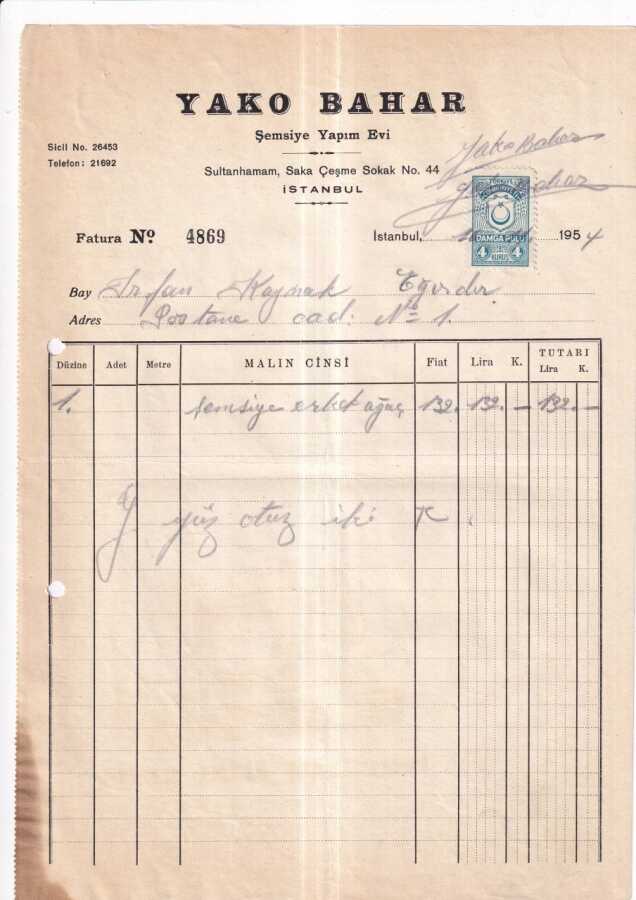 YAKO BAHAR
Şemsiye Yapım Evi
Sicil No. 26453
Telefon: 21692
Sultanhamam, Saka Çeşme Sokak No. 44
İSTANBUL
Yako Bahar
Yako Bahar
DAMGA PULU
4 KURUŞ 4
Fatura No. 4869
İstanbul, 1954
Bay İrfan Kaynak Eğirdir
Adres Postane cad: No 1.
Düzine Adet Metre MALIN CİNSİ Fiat Lira K. TUTARI Lira K.
1. şemsiye erkek ağaç 132. 132. — 132. —
Y yüz otuz iki K.